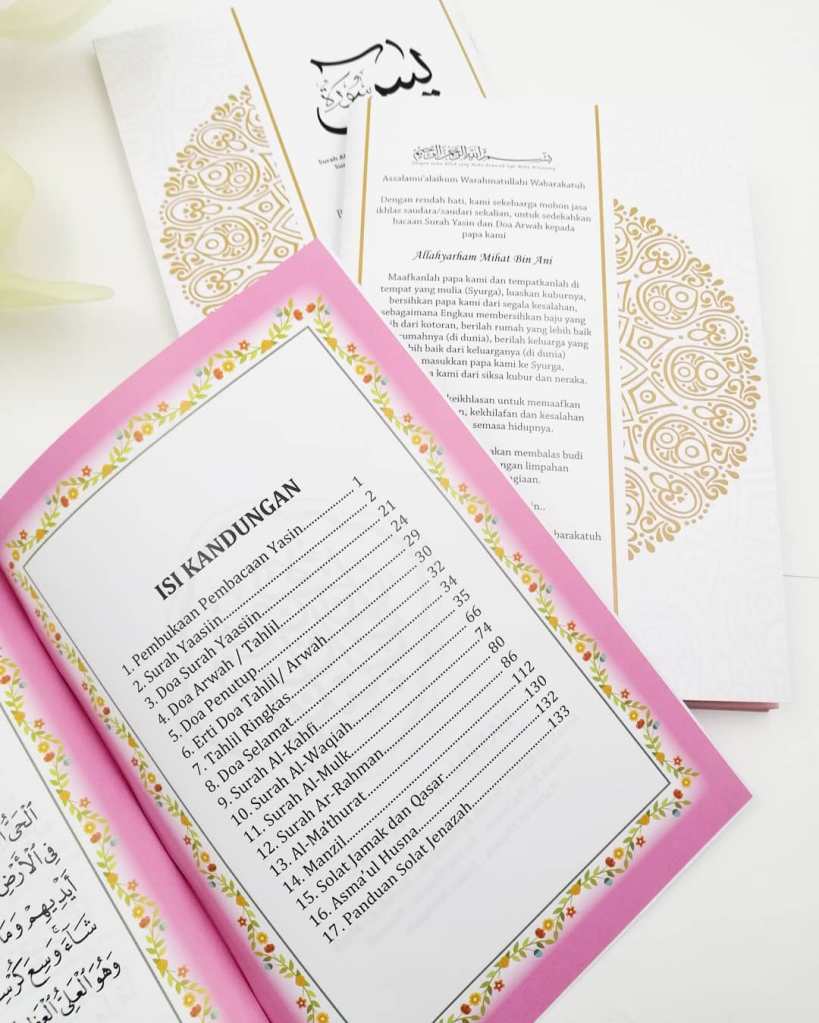 يس
سورة
بسم الله الرحمن الرحيم
Assalamu'alaikum Warahmatullahi Wabarakatuh
Dengan rendah hati, kami sekeluarga mohon jasa
ikhlas saudara/saudari sekalian, untuk sedekahkan
bacaan Surah Yasin dan Doa Arwah kepada
papa kami
Allahyarham Mihat Bin Ani
Maafkanlah papa kami dan tempatkanlah di
tempat yang mulia (Syurga), luaskan kuburnya,
bersihkan papa kami dari segala kesalahan,
sebagaimana Engkau membersihkan baju yang
dari kotoran, berilah rumah yang lebih baik
(di dunia), berilah keluarga yang
baik dari keluarganya (di dunia)
masukkan papa kami ke Syurga,
kami dari siksa kubur dan neraka.
keikhlasan untuk memaafkan
kekhilafan dan kesalahan
semasa hidupnya.
membalas budi
limpahan
ISI KANDUNGAN
1. Pembukaan Pembacaan Yasin 1
2. Surah Yaasiin 2
3. Doa Surah Yaasiin 21
4. Doa Arwah / Tahlil 24
5. Doa Penutup 29
6. Erti Doa Tahlil/ Arwah 30
7. Tahlil Ringkas 32
8. Doa Selamat 34
9. Surah Al-Kahfi 35
10. Surah Al-Waqiah 66
11. Surah Al-Mulk 74
12. Surah Ar-Rahman 80
13. Al-Ma'thurat 86
14. Manzil 112
15. Solat Jamak dan Qasar 130
16. Asma'ul Husna 132
17. Panduan Solat Jenazah 133
فِى ٱلْأَرْضِ
أَيْدِيهِمْ وَمَا
شَآءَ وَسِعَ
وَهُوَ ٱلْعَلِىُّ